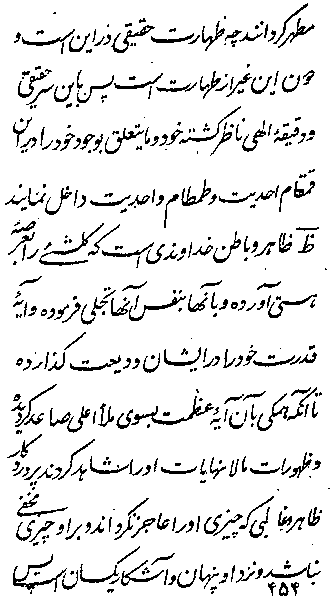 مطهر گردانند چه طهارت حقیقی در این است و
چون این غیر از طهارت است پس باین سر حقیقی
و دقیقهٔ الهی ناظر گشته خود و ما یتعلق بوجود خود را در این
قمقام احدیت و طمطام واحدیت داخل نمایند
ظاهر و باطن خداوندی است که کلشئ را بعرصهٔ
هستی آورده و بآنها بنفس آنها تجلی فرموده و آیهٔ
قدرت خود را در ایشان ودیعت گذارده
تا آنکه همگی بآن آیهٔ عظمت بسوی ملأ اعلی صاعد گردیده
و ظهورات ما لا نهایات او را مشاهد کردند پروردگار
ظاهر و غالبی که چیزی او را عاجز نکرد اند و بر او چیزی مخفی
نباشد و نزد او پنهان و آشکار یکسان است پس
۴۵۴